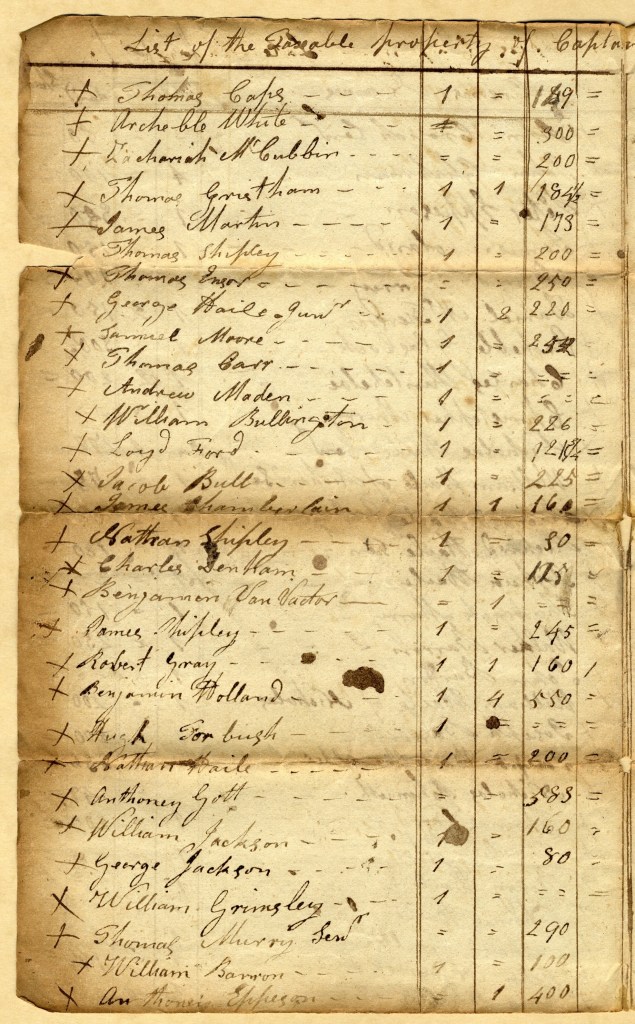 List of the Taxeable property of Captai
+ Thomas Caps - - - 1 = 189 =
+ Archable White - - - = = 300 =
+ Zachariah McCubbin - - - = = 200 =
+ Thomas Gristham - - - 1 1 184½ =
+ James Martin - - - - 1 = 173 =
Thomas Shipley - - - 1 = 200 =
+ Thomas Ensor - - - = = 250 =
+ George Haile Junr - 1 2 220 =
+ Samuel Moore - - - 1 = =
+ Thomas Carr - - - 1 = = = =
+ Andrew Maden - - 1 = = = =
+ William Bullington 1 = 226 =
+ Loyd Ford - - - 1 = =
+ Jacob Bull - - - 1 = 225 =
+ James Chamberlain 1 1 160 =
+ Nathan Shipley - - 1 = 50 =
+ Charles Denham - - - 1 = 175 =
+ Benjamen Van Vactor - = 1 = = =
+ James Shipley - - - 1 = 245 =
+ Robert Gray - - - 1 1 160 /
+ Benjamin Holland - - 1 4 550 =
+ Hugh Forbush - - - 1 =
+ Nathan Haile - - - 1 = 200 =
+ Anthoney Gott - - - = = 583 =
+ William Jackson - - - 1 160 =
+ George Jackson - - - 1 = 80 =
+ William Grimsley - - 1 = = = =
+ Thomas Murry Senr = = 290 =
+ William Barron - - - 1 = 100 =
+ Anthoney Eppeson - - = 1 400 =